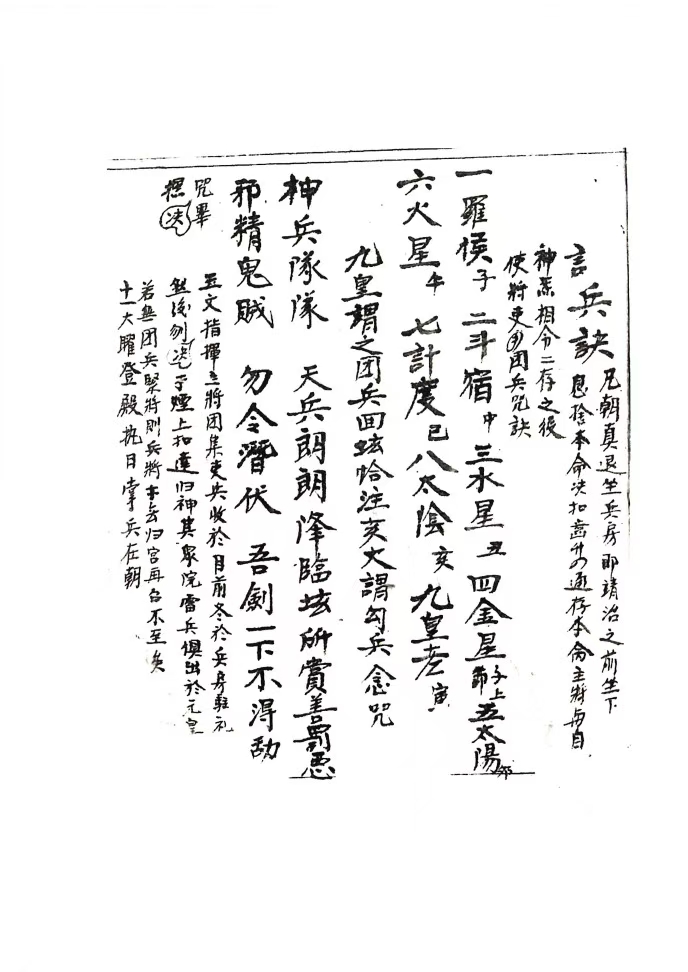 言兵訣 凡朝真退坐兵房即靖治之前坐下
息捨本命决扣齒廾四通存本命主將每自
神炁相合二存之後
使將吏團兵咒訣
一羅㬋子 二斗宿中 三水星丑 四金星子上 五太陽卯
六火星午 七計度已 八太陰亥 九皇老寅
九皇謂之团兵回垓恰注亥大謂勾兵念咒
神兵隊隊 天兵朗朗 降臨垓所 賞善罰惡
邪精鬼贼 勿令潛伏 吾劍一下不淂刼
咒畢
捏决
五文指揮主將团集吏兵收於目前 於兵房 礼
然後刎决于煙上扣達归神其眾院雷兵俱出於元皇
若無团兵緊將則兵將去归宫再台不至矣
十一大曜登殿执日掌兵在朝